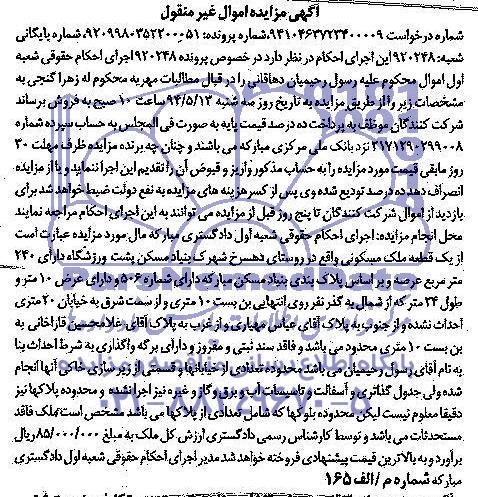 آگهی مزایده اموال غیر منقول
شماره درخواست ۹۴۱۰۴۶۳۷۲۳۴۰۰۰۰۹، شماره پرونده: ۹۲۰۹۹۸۰۳۵۲۲۰۰۰۵۱، شماره بایگانی
شعبه: ۹۲۰۲۴۸ این اجرای احکام در نظر دارد در خصوص پرونده ۹۲۰۲۴۸ اجرای احکام حقوقی شعبه
اول اموال محکوم علیه رسول رحیمیان دهاقانی را در قبال مطالبات مهریه محکوم له زهرا گنجی به
مشخصات زیر را از طریق مزایده به تاریخ روز سه شنبه ۹۴/۵/۱۳ ساعت ۱۰ صبح به فروش برساند
شرکت کنندگان موظف به پرداخت ده درصد قیمت پایه به صورت فی المجلس به حساب سپرده شماره
۲۱۷۱۲۹۰۲۹۹۰۰۸ نزد بانک ملی مرکزی مبارکه می باشند و چنان چه برنده مزایده ظرف مهلت ۳۰
روز مابقی قیمت مورد مزایده را به حساب مذکور واریز و قبوض آن را تقدیم این اجرا ننماید و یا از مزایده
انصراف دهد ده درصد تودیع شده وی پس از کسر هزینه های مزایده به نفع دولت ضبط خواهد شد برای
بازدید از اموال شرکت کنندگان تا پنج روز قبل از مزایده می توانند به این اجرای احکام مراجعه نمایند
محل انجام مزایده: اجرای احکام حقوقی شعبه اول دادگستری مبارکه مال مورد مزایده عبارت است
از یک قطعه ملک مسکونی واقع در روستای دهسرخ شهرک بنیاد مسکن پشت ورزشگاه دارای ۲۴۰
متر مربع عرصه و بر اساس پلاک بندی بنیاد مسکن مبارکه دارای شماره ۵۰۶ و دارای عرض ۱۰ متر و
طول ۲۴ متر که از شمال به گذر نفر روی انتهایی بن بست ۱۰ متری و از سمت شرق به خیابان ۲۰ متری
احداث نشده و از جنوب به پلاک آقای عباس مهیاری و از غرب به پلاک آقای غلامحسین قازاخانی به
بن بست ۱۰ متری محدود می باشد و فاقد سند ثبتی و مفروز و دارای برگه واگذاری به شرط احداث بنا
به نام آقای رسول رحیمیان می باشد محدوده تعدادی از خیابانها و قسمتی از زیر سازی خاکی آنها انجام
شده ولی جدول گذاری و آسفالت و تاسیسات آب و برق و گاز و غیره نیز اجرا نشده و محدوده پلاکها نیز
دقیقا معلوم نیست لیکن محدوده بلوکها که شامل تعدادی از پلاکها می باشد مشخص است ملک فاقد
مستحدثات می باشد و توسط کارشناس رسمی دادگستری ارزش کل ملک به مبلغ ۸۵/۰۰۰/۰۰۰ ریال
برآورد و به بالاترین قیمت پیشنهادی فروخته خواهد شد مدیر اجرای احکام حقوقی شعبه اول دادگستری
مبارکه شماره م / الف ۱۶۵